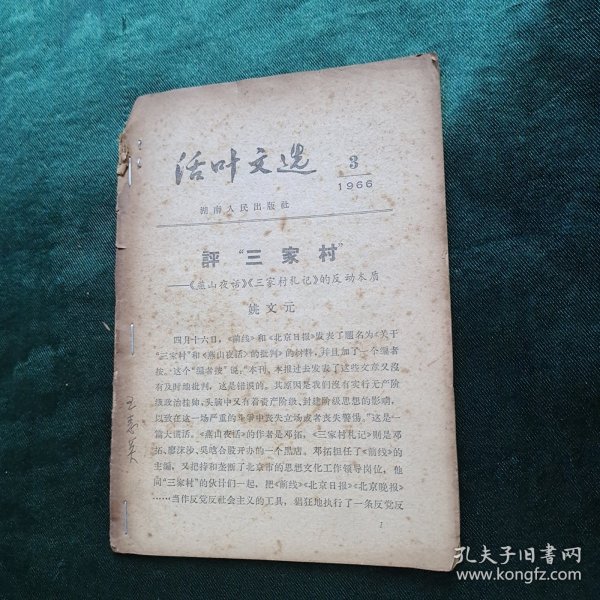 活叶文选
3
1966
湖南人民出版社
評“三家村”
——《燕山夜话》《三家村札记》的反动本质
姚文元
四月十六日，《前线》和《北京日报》发表了题名为《关于
“三家村”和《燕山夜话》的批判》的材料，并且加了一个编者
按。这个“编者按”说，“本刊、本报过去发表了这些文章又沒
有及时地批判，这是错误的。其原因是我们沒有实行无产阶
级政治挂帅，头脑中又有着资产阶级、封建阶级思想的影响，
以致在这一场严重的斗争中丧失立场或者丧失警惕。”这是一
篇大谎话。《燕山夜话》的作者是邓拓，《三家村札记》则是邓
拓、廖沫沙、吴晗合股开办的一个黑店。邓拓担任了《前线》的
主编，又把持和垄断了北京市的思想文化工作领导岗位，他
同“三家村”的伙计们一起，把《前线》《北京日报》《北京晚报》
……当作反党反社会主义的工具，猖狂地执行了一条反党反
1
孔夫子旧书网
www.kongfz.com